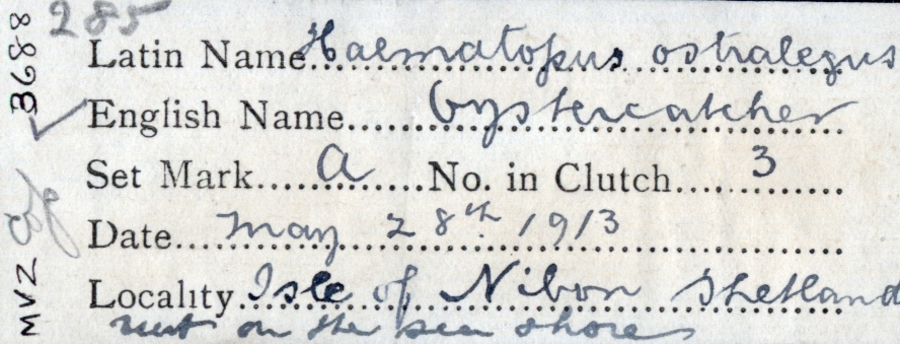 285
Latin Name Haematopus ostralegus
English Name Oystercatcher
Set Mark a No. in Clutch 3
Date May 28th. 1913
Locality Isle of Nibon Shetland
nest on the sea shore
MVZ 3688